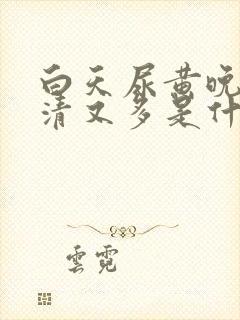 白天尿黄晚
清又多是什
雲霓